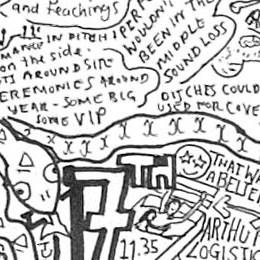 and teachings
IN DITCH
on the side.
AROUND SITE
CEREMONIES AROUND
YEAR - SOME BIG
SOME VIP
WOULDN'T
BEEN IN THE
MIDDLE
SOUND LOSS
DITCHES COULD
USED FOR COVE
X X X X X X X X
7TH
11.35
THAT WA
A BELIE
ARTHU
LOGISTI